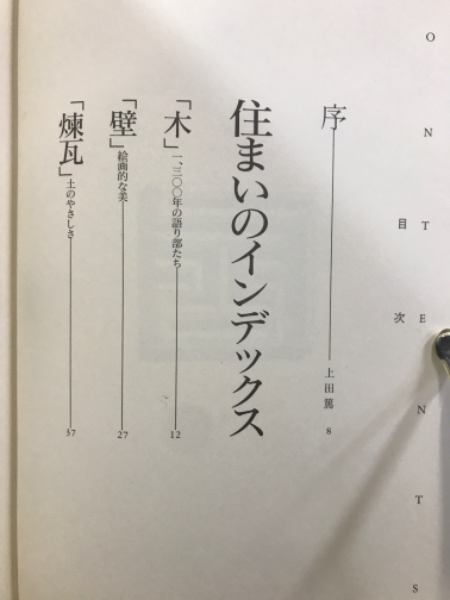 ONTENTS
目次
序 上田篤 8
住まいのインデックス
「木」一、三〇〇年の語り部たち 12
「壁」絵画的な美 27
「煉瓦」土のやさしさ 37